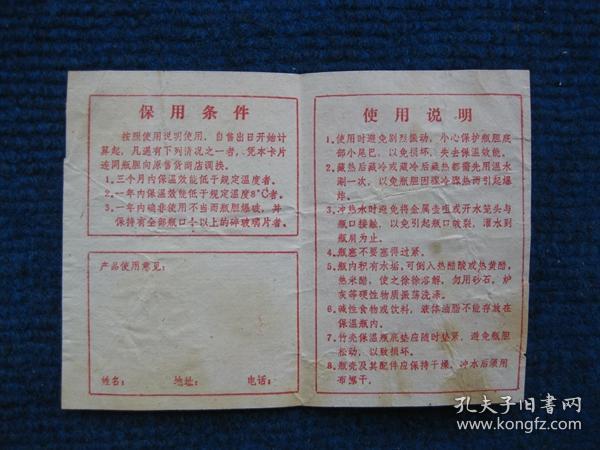 保用条件
按照使用说明使用，自售出日开始计
算起，凡遇有下列情况之一者，凭本卡片
连同瓶胆向原售货商店调换。
1、三个月内保温效能低于规定温度者。
2、一年内保温效能低于规定温度8℃者。
3、一年内确非使用不当而瓶胆爆破，并
保持有全部瓶口以上的碎玻璃片者。
产品使用意见：
姓名： 地址： 电话：
使用说明
1、使用时避免剧烈振动，小心保护瓶胆底
部小尾巴，以免损坏、失去保温效能。
2、藏热后藏冷或藏冷后藏热都需先用温水
涮一次，以免瓶胆因骤冷骤热而引起爆
炸。
3、冲热水时避免将金属壶咀或开水笼头与
瓶口接触，以免引起瓶口破裂，灌水到
瓶肩为止。
4、瓶塞不要塞得过紧。
5、瓶内积有水垢，可倒入热醋酸或热黄醋，
热米醋，使之徐徐溶解，勿用砂石，炉
灰等硬性物质振荡洗涤。
6、碱性食物或饮料，液体油脂不能存放在
保温瓶内。
7、竹壳保温瓶底垫应随时垫紧，避免瓶胆
松动，以致损坏。
8、瓶壳及其配件应保持干燥，冲水后须用
布擦干。
孔夫子旧书网
www.kongfz.com